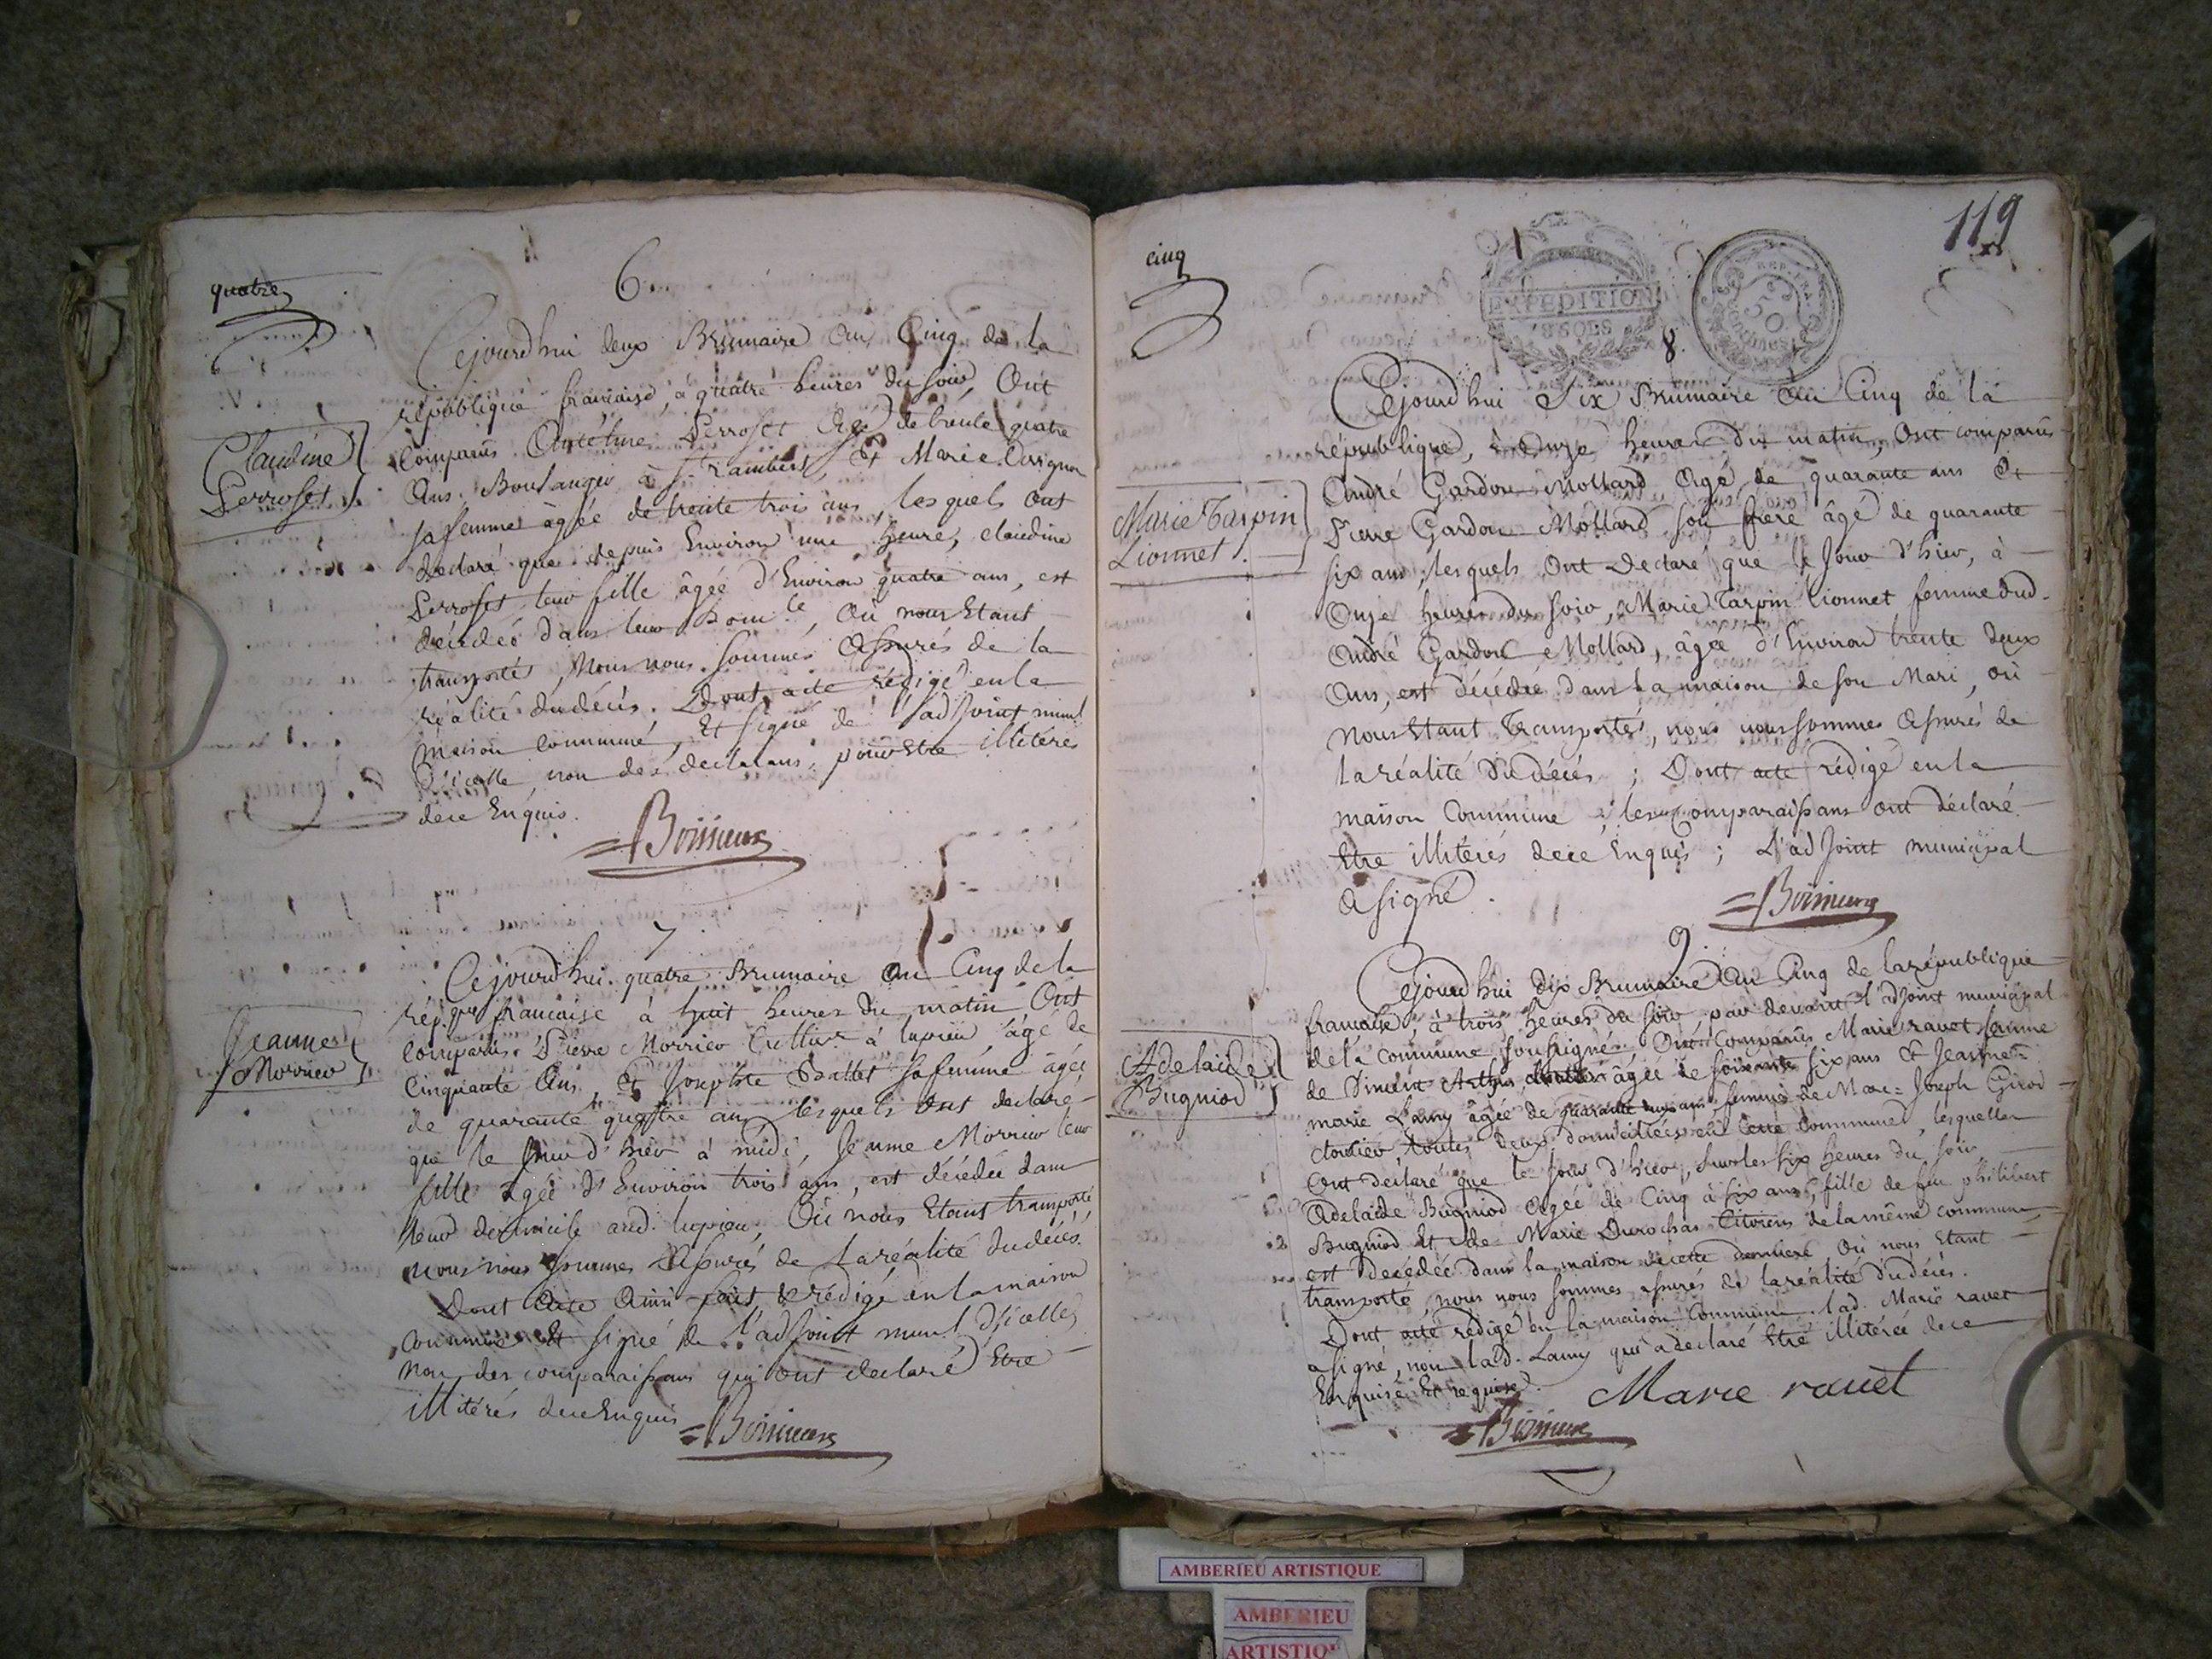 quatre
6
Cejourdhui deux Brumaire an Cinq de la
république francaise, à quatre heures du soir, Ont
Comparus Antelme Perroset agé de trente quatre
Ans Boulanger à St rambert, & Marie
sa femme âgée de trente trois ans, lesquels ont
declaré que depuis Environ une heure, claudine
Perroset leur fille âgée d'Environ quatre ans, est
décédée dans leur Domle, Où nous Etant
transporté, Nous nous sommes Assurés de la
réalité du décès. Dont acte rédigé en la
maison commune, Et signé de l'adjoint munl
d'icelle, non des declarans, pour Etre illitérés
de ce Enquis.
Claudine
Perroset.
7
Cejourdhui quatre Brumaire An Cinq de la
rép.que francaise à huit heures du matin Ont
Comparus Pierre Morrier Cultivr à lupieu âgé de
Cinquante Ans, Et Josephte Ballet sa femme âgée
de quarante quatre ans lesquels ont declaré
que le jour d'hier à midi, Jeanne Morrier leur
fille âgée d'Environ trois ans, est décédée dans
leur domicile aud. lupieu, Où nous Etant transporté,
nous nous sommes Assurés de la réalité du décès.
Dont Acte Ainsi fait & rédigé en la maison
commune Et signé de l'adjoint munl d'icelle,
non des comparaissans qui ont declaré Etre
illitérés de ce Enquis
Jeanne
Morrier
119
cinq
EXPEDITION
REP. FRA.
50
Centimes
8.
Cejourdhui Six Brumaire An Cinq de la
république, à Onze heures du matin, Ont comparus
André Gardon Mollard Agé de quarante ans Et
Pierre Gardon Mollard son frere âgé de quarante
six ans, lesquels Ont Declaré que le Jour d'hier, à
Onze heures du soir, Marie Tarpin Lionnet femme dud.
André Gardon Mollard, âgée d'Environ trente deux
Ans, est décédée dans la maison de son Mari, où
nous Etant Transporté, nous nous sommes Assurés de
la réalité du décés ; Dont acte rédigé en la
maison Commune ; les Comparaissans ont déclaré
Etre illitérés de ce Enquis ; L'adjoint municipal
A signé.
Marie Tarpin
Lionnet.
9.
Cejourdhui dix Brumaire An Cinq de la république
francaise, à trois heures du soir par devant l'adjoint municipal
de la commune soussigné. Ont Comparus Marie ravet femme
de Vincent Arthus, âgée de soixante six ans Et Jeanne
marie Lamy âgée de quarante ans femme de Marc-Joseph Girod
cloutier, toutes deux domiciliées en cette Commune, lesquelles
Ont declaré que le jour d'hier, sur les six heures du soir
Adelaide Bugniod Agée de Cinq à six ans, fille de feu philibert
Bugniod Et de Marie Durochas Citoiens de la même commune
est décédée dans la maison de cette derniere Où nous Etant
transporté, nous nous sommes assurés de la réalité du décès.
Dont acte rédigé en la maison Commune. lad. Marie ravet
a signé, non lad. Lamy qui a declaré Etre illitérée de ce
Enquise Et requise.
Adelaide
Bugniod
Marie rauet
AMBERIEU ARTISTIQUE
AMBERIEU
ARTISTIQ